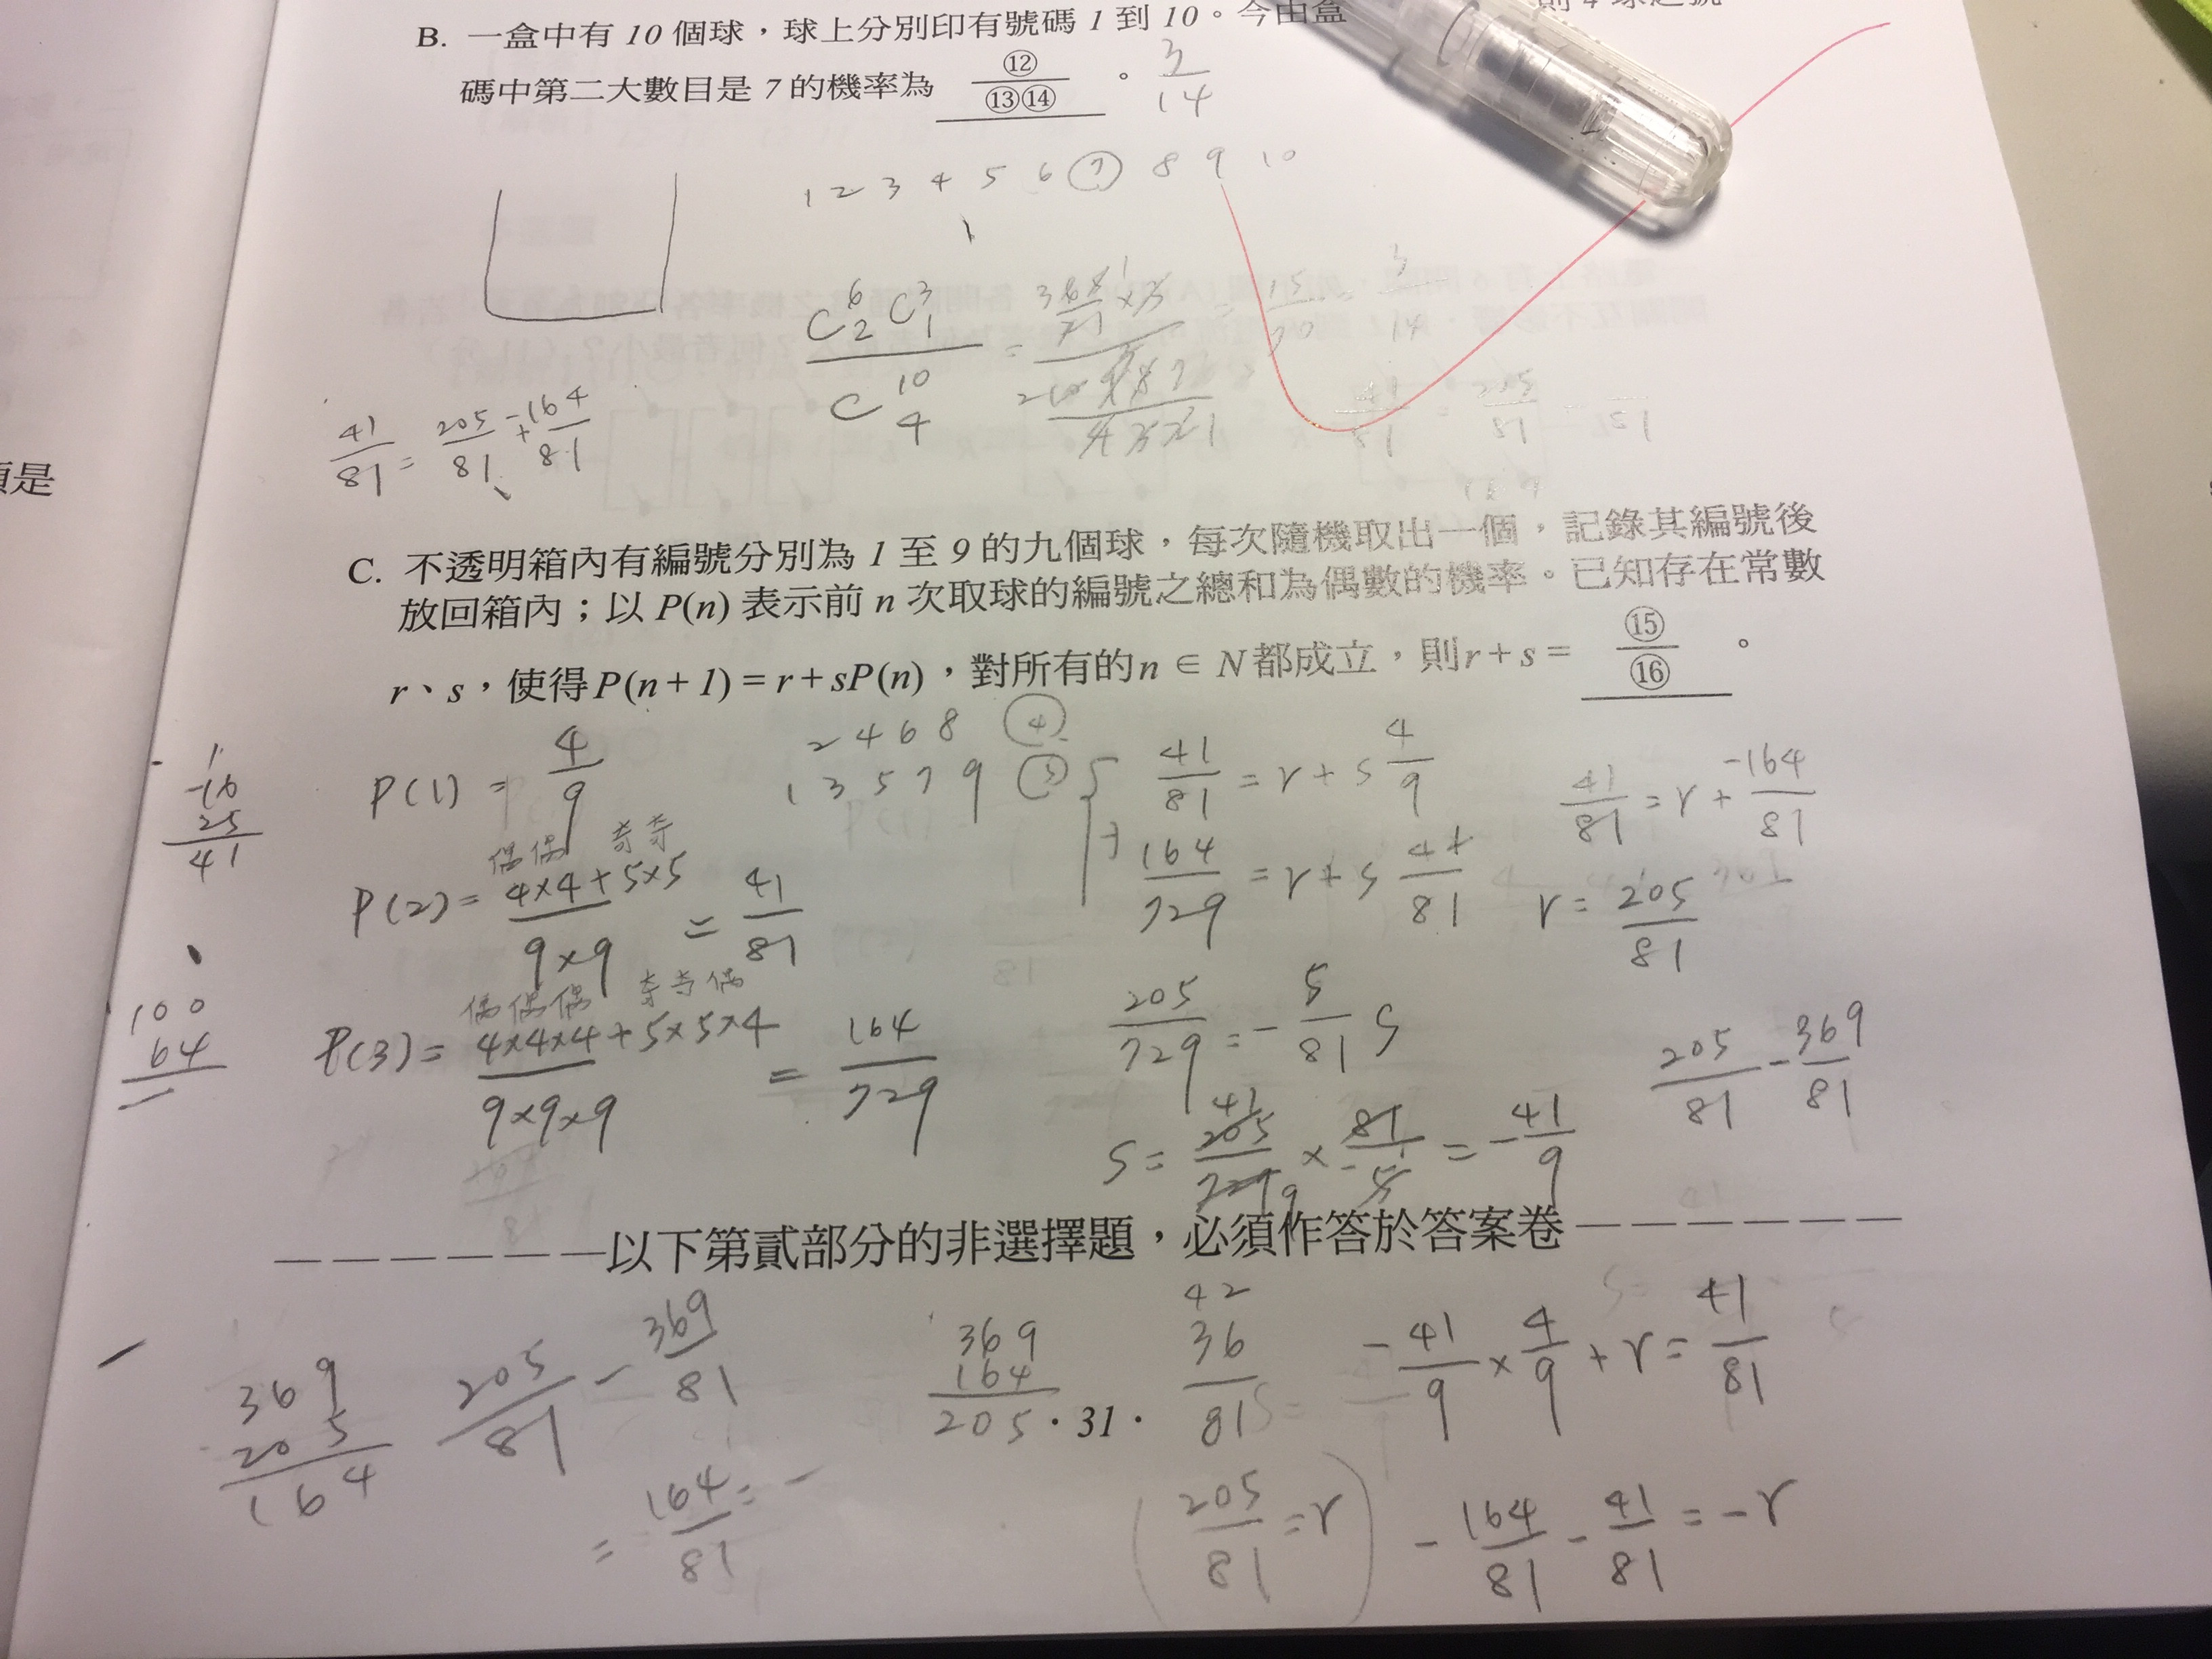 B. 一盒中有 10 個球，球上分別印有號碼 1 到 10。今由盒
碼中第二大數目是 7 的機率為 ⑫/⑬⑭ 。 3/14
1 2 3 4 5 6 ⑦ 8 9 10
C^6_2 C^3_1 / C^10_4 =
= 15/70 = 3/14
41/81 = 205/81 + -164/81
41/81 = 205/81
項是
C. 不透明箱內有編號分別為 1 至 9 的九個球，每次隨機取出一個，記錄其編號後
放回箱內；以 P(n) 表示前 n 次取球的編號之總和為偶數的機率。已知存在常數
r、s，使得 P(n+1) = r + sP(n)，對所有的 n ∈ N 都成立，則 r + s = ⑮/⑯ 。
2 4 6 8 ④
1 3 5 7 9 ⑤
P(1) = 4/9
偶偶 奇奇
P(2) = 4×4+5×5 / 9×9 = 41/81
偶偶偶 奇奇偶
P(3) = 4×4×4+5×5×4 / 9×9×9 = 164/729
16
25
41
100
64
41/81 = r + s 4/9
164/729 = r + s 41/81
205/729 = - 5/81 s
s = 205/729 × 81/-5 = - 41/9
41/81 = r + -164/81
r = 205/81
205/81 - 369/81
——————以下第貳部分的非選擇題，必須作答於答案卷——————
369
205
164
205/81 - 369/81
= 164/81 = -
369
164
205
· 31 ·
42
36
81
- 41/9 × 4/9 + r = 41/81
- 164/81 - 41/81 = -r
( 205/81 = r )